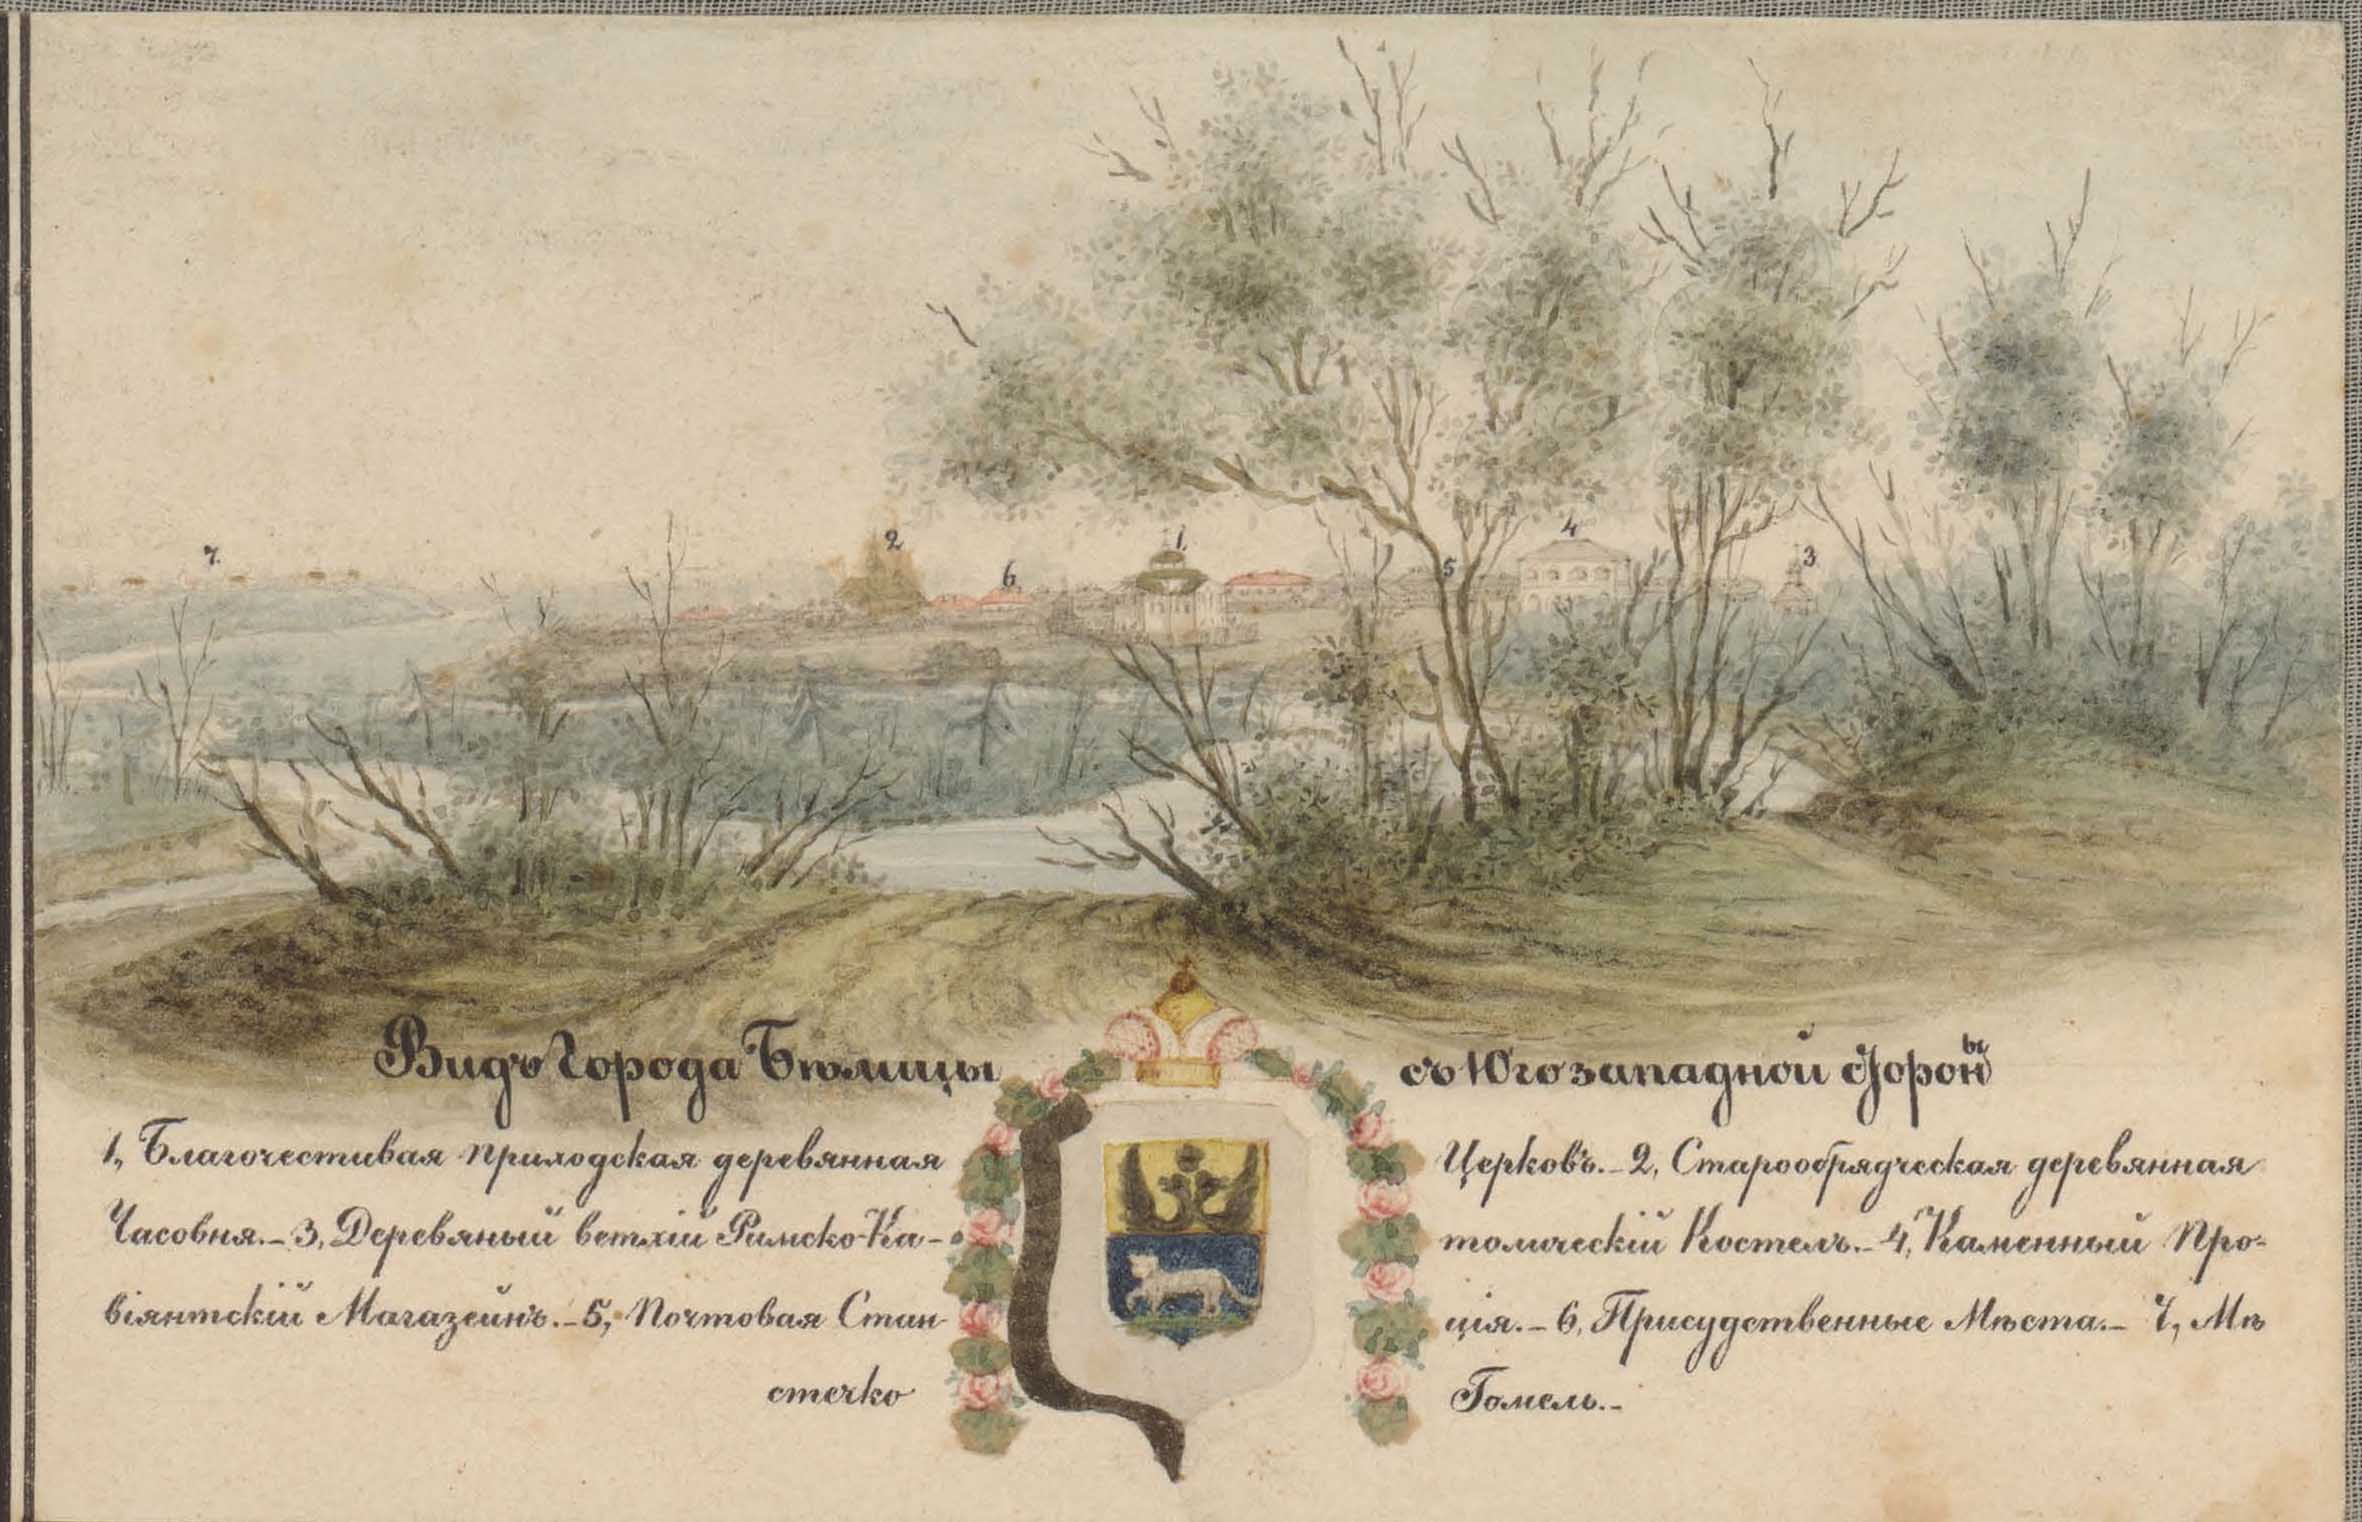 7. 2 6. 1. 5 4 3
Видъ Города Бѣлицы съ Югозападной стороны
1, Благочестивая приходская деревянная Церковь.- 2, Старообрядческая деревянная
Часовня.- 3, Деревяный ветхій Римско-Ка- толическій Костелъ.- 4, Каменный Про-
віянтскій Магазейнъ.- 5, Почтовая Стан- ція.- 6, Присудственные Мѣста.- 7, Мѣ
стечко Гомель.-